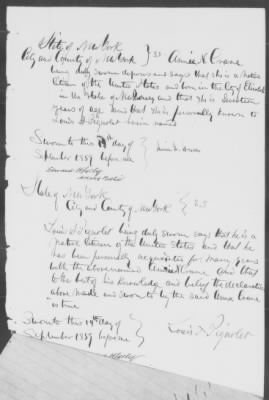 State of New York
City and County of New York } SS Annie N. Crane
being duly sworn deposes and says that she is a native
Citizen of the United States and born in the City of
in the State of New Jersey and that she is nineteen
years of age and that she is personally known to
Louis D. Pignolet
Sworn to this 19th day of
September 1859 before me
State of New York
City and County of New York } SS
Louis D Pignolet being duly sworn says that he is a
native Citizen of the United States and that he
has been personally acquainted for many years
with the above named Annie N. Crane and that
to the best of his knowledge and belief the declaration
above made and sworn to by the said Annie Crane
is true
Sworn to this 19th day of
September 1859 before me
Louis D. Pignolet